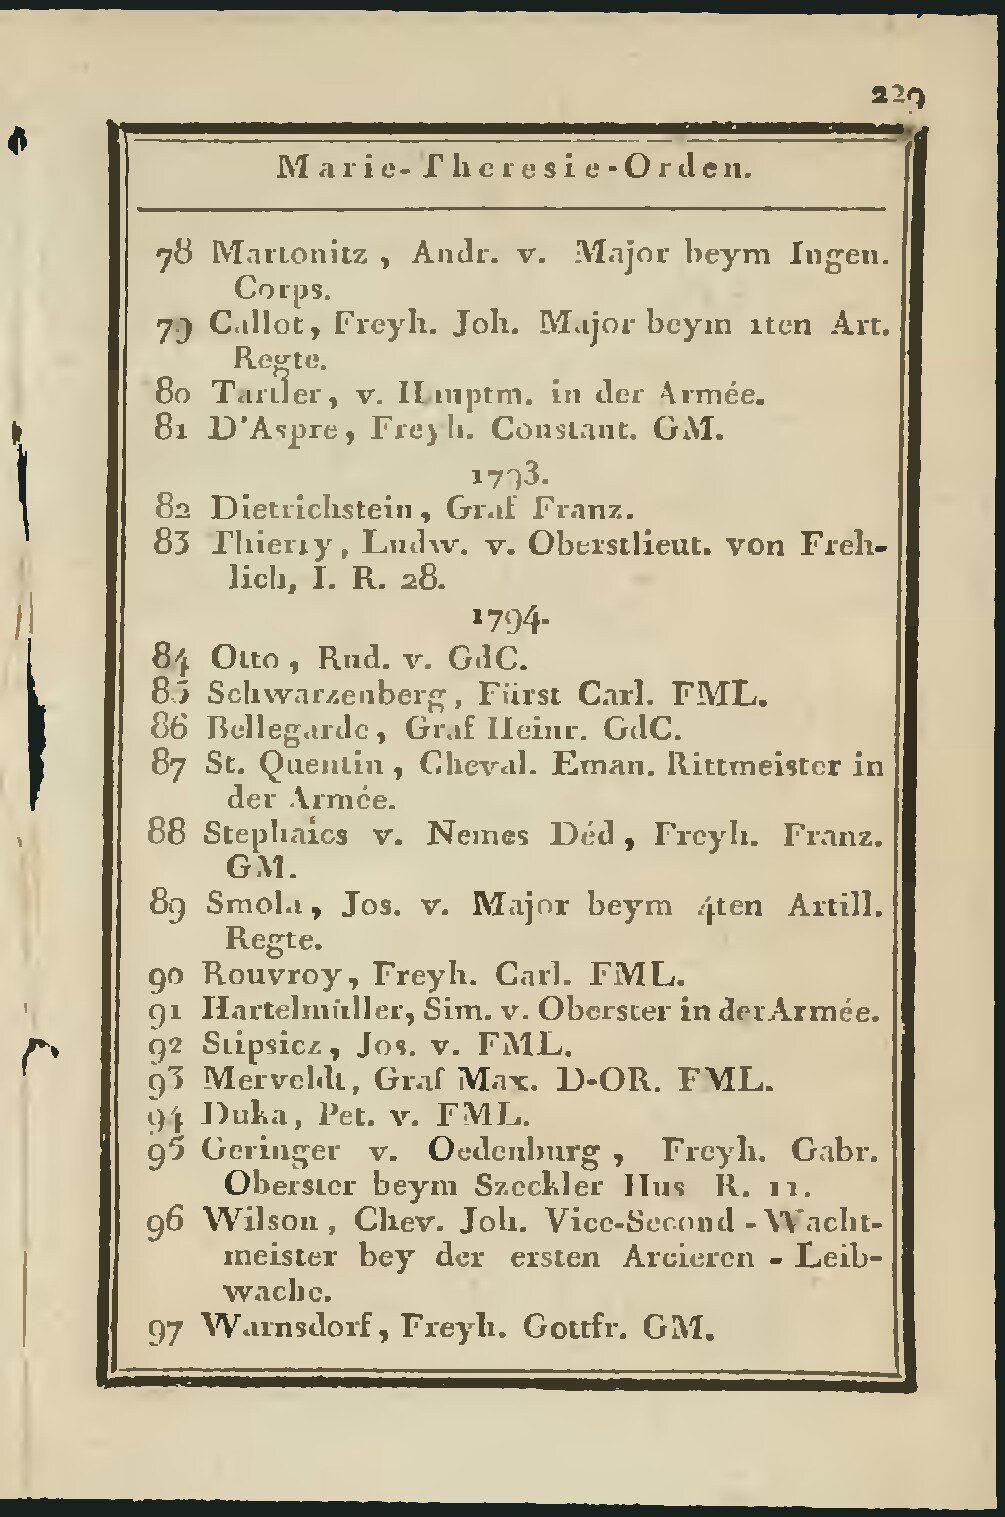 229
Marie-Theresie-Orden.
78 Martonitz, Andr. v. Major beym Ingen.
Corps.
79 Callot, Freyh. Joh. Major beym 1ten Art.
Regte.
80 Tartler, v. Hauptm. in der Armée.
81 D'Aspre, Freyh. Constant. GM.
1793.
82 Dietrichstein, Graf Franz.
83 Thierry, Ludw. v. Oberstlieut. von Freh-
lich, I. R. 28.
1794.
84 Otto, Rud. v. GdC.
85 Schwarzenberg, Fürst Carl. FML.
86 Bellegarde, Graf Heinr. GdC.
87 St. Quentin, Cheval. Eman. Rittmeister in
der Armée.
88 Stephaics v. Nemes Déd, Freyh. Franz.
GM.
89 Smola, Jos. v. Major beym 4ten Artill.
Regte.
90 Rouvroy, Freyh. Carl. FML.
91 Hartelmüller, Sim. v. Oberster in der Armée.
92 Stipsicz, Jos. v. FML.
93 Merveldt, Graf Max. D-OR. FML.
94 Duka, Pet. v. FML.
95 Geringer v. Oedenburg, Freyh. Gabr.
Oberster beym Szeckler Hus R. 11.
96 Wilson, Chev. Joh. Vice-Second-Wacht-
meister bey der ersten Arcieren-Leib-
wache.
97 Warnsdorf, Freyh. Gottfr. GM.